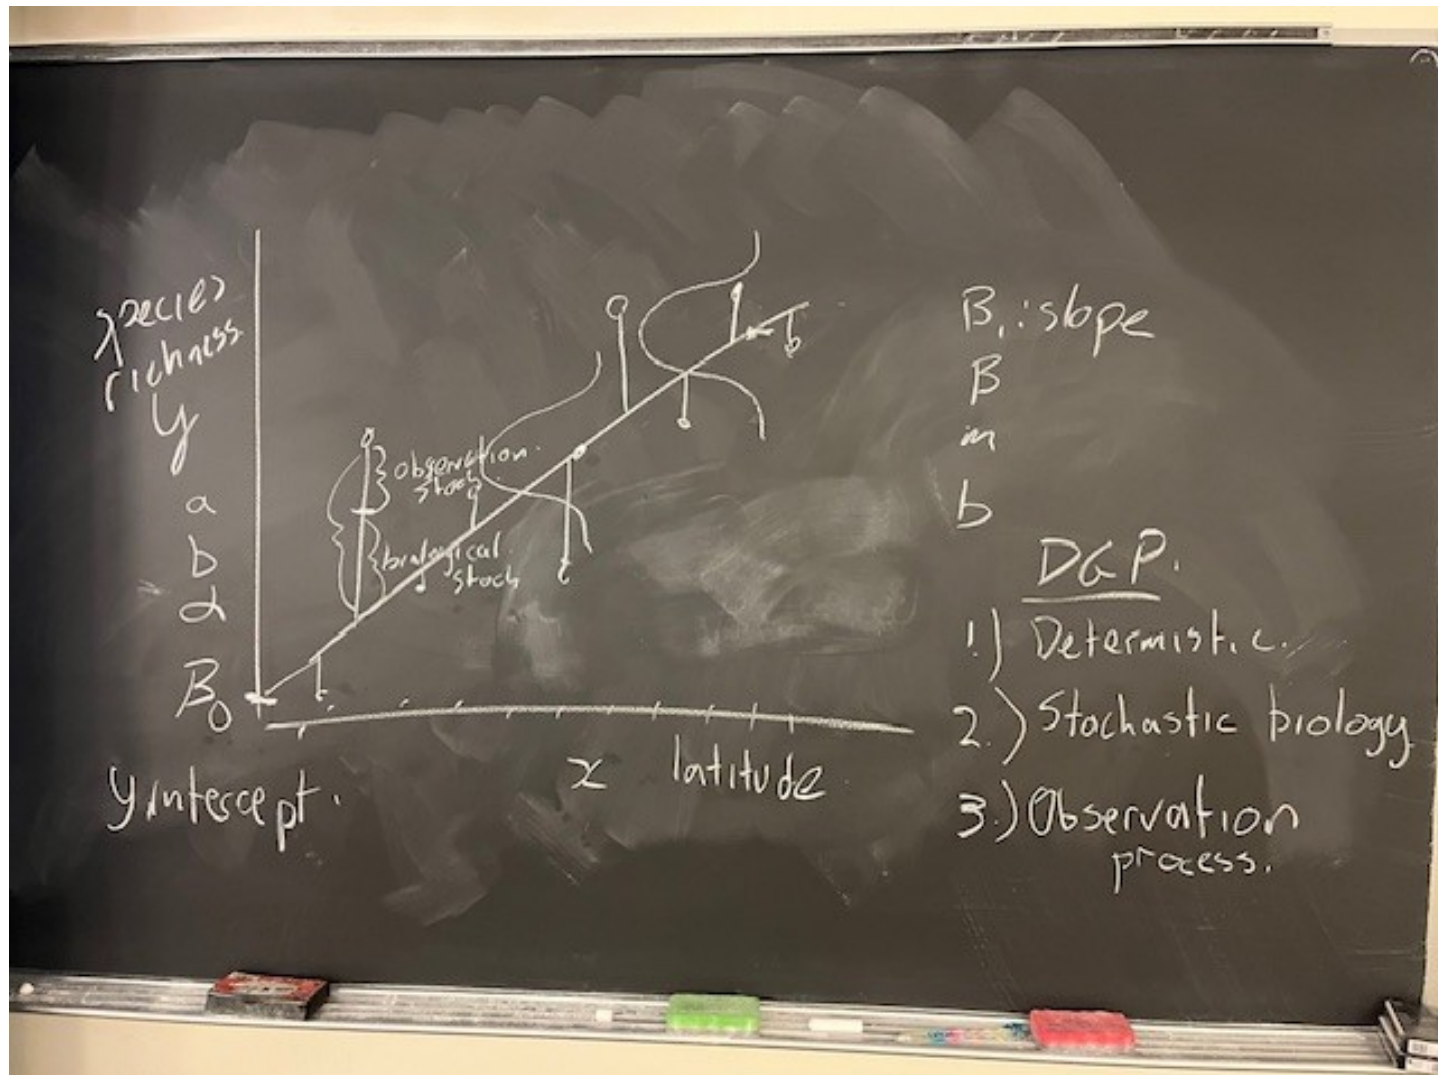 species
richness
y
a
b
α
B0
y intercept.
observation
stoch
biological
stoch
b
x latitude
B1: slope
B
m
b
DGP.
1.) Determistic.
2.) Stochastic biology
3.) Observation
process.